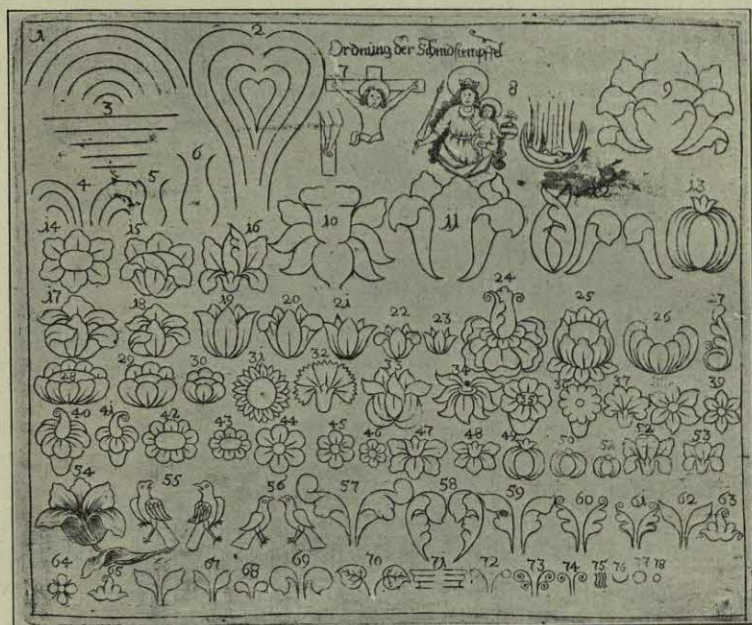 Ordnung der Schnidstempffel
1 2 7 8 9
3
4 5 6
10 11 12 13
14 15 16
17 18 19 20 21 22 23 24 25 26 27
28 29 30 31 32 33 34 35 36 37 39
40 41 42 43 44 45 46 47 48 49 50 51 52 53
54 55 56 57 58 59 60 61 62 63
64 66 67 68 69 70 71 72 73 74 75 76 77 78